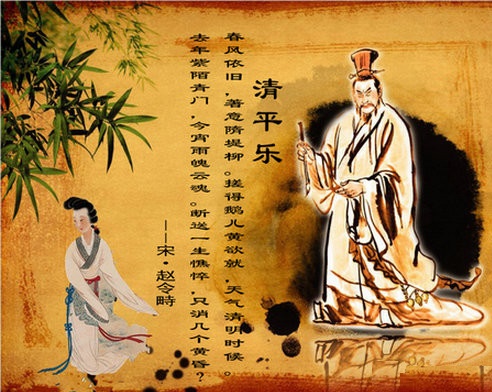 清平乐
春风依旧，著意隋堤柳。搓得鹅儿黄欲就，天气清明时候。
去年紫陌青门，今宵雨魄云魂。断送一生憔悴，只消几个黄昏？
——宋·赵令畤